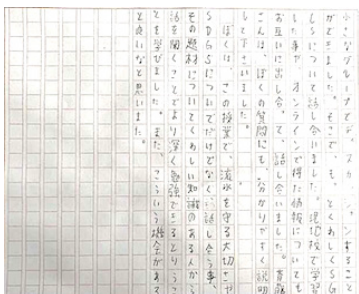 小さなグループで、ディスカッションすること
ができました。そこでも、とくわしくSDG
Sについて話し合いました。現地校で学習
した事や、オンラインで得た情報についても
お互いに出し合って、話し合いました。斉藤
さんは、ぼくの質問にも分かりやすく説明
して下さいました。
ぼくは、この授業で、海水を守る大切さや
SDGSについてだけでなく、話し合う事、
その題材についてくわしい知識のある人から
話を聞くことでより深く勉強できるというこ
とを学びました。また、こういう機会がある
と良いなと思いました。